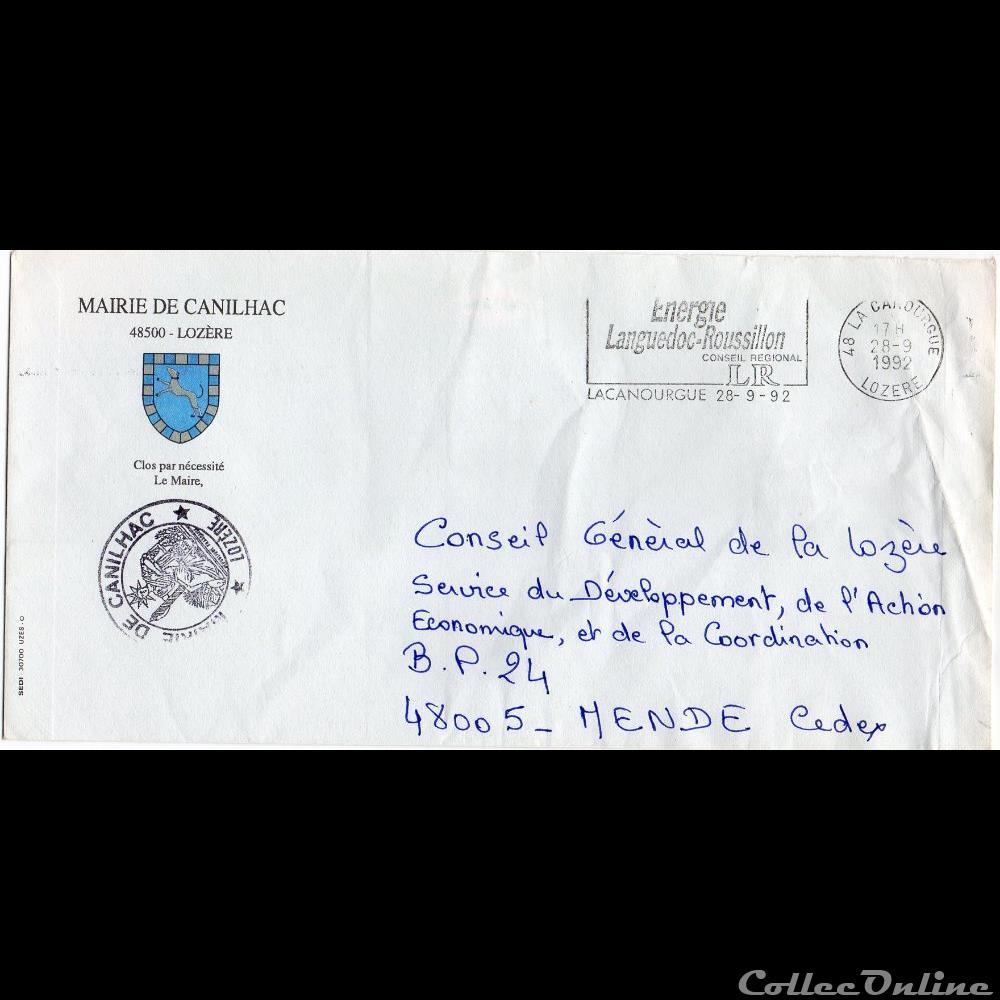 MAIRIE DE CANILHAC
48500 - LOZÈRE
Clos par nécessité
Le Maire,
MAIRIE DE CANILHAC ★ LOZERE ★
SEDI 30700 UZES - O
Energie
Languedoc-Roussillon
CONSEIL REGIONAL
LR
LACANOURGUE 28-9-92
48 LA CANOURGUE
17 H
28-9
1992
LOZERE
Conseil Général de la Lozère
Service du Développement, de l'Action
Economique, et de la Coordination
B.P. 24
48005 - MENDE Cedex
CollecOnline